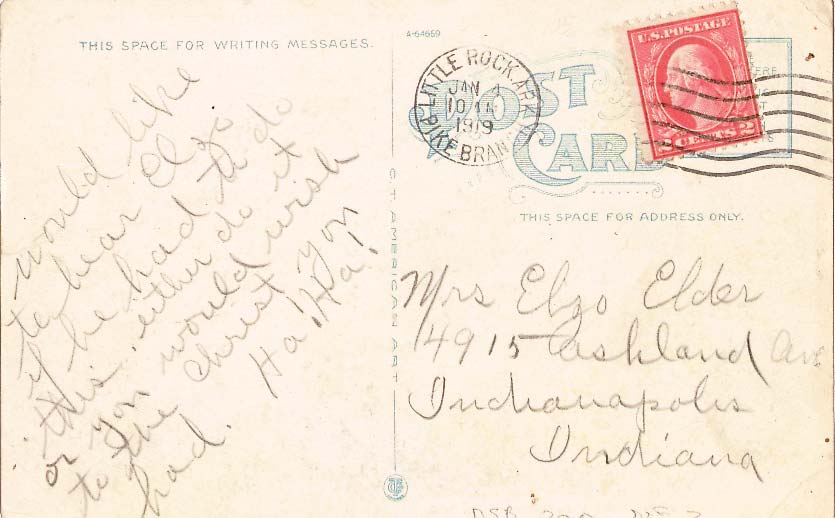 THIS SPACE FOR WRITING MESSAGES.
would like
to hear Elzo
if he had to do
this, either do it
or you would wish
to the Christ you
had. Ha! Ha!
A-64669
C.T. AMERICAN ART
POST CARD
LITTLE ROCK, ARK.
JAN 4
10
1919
PIKE BRANCH
U.S. POSTAGE
2 CENTS 2
THIS SPACE FOR ADDRESS ONLY.
Mrs Elzo Elder
4915 Cashland Ave
Indianapolis
Indiana